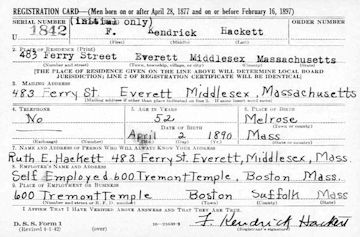 REGISTRATION CARD—(Men born on or after April 28, 1877 and on or before February 16, 1897)
SERIAL NUMBER (initial only) ORDER NUMBER
U 1842 F. Kendrick Hackett
(First) (Middle) (Last)
2. PLACE OF RESIDENCE (Print)
483 Ferry Street Everett Middlesex Massachusetts
(Number and street) (Town, township, village, or city) (County) (State)
[THE PLACE OF RESIDENCE GIVEN ON THE LINE ABOVE WILL DETERMINE LOCAL BOARD
JURISDICTION; LINE 2 OF REGISTRATION CERTIFICATE WILL BE IDENTICAL]
3. MAILING ADDRESS
483 Ferry St. Everett Middlesex, Massachusetts
(Mailing address if other than place indicated on line 2. If same insert word same)
4. TELEPHONE 5. AGE IN YEARS 6. PLACE OF BIRTH
No 52 Melrose
DATE OF BIRTH (Town or county)
April 2 1890 Mass
(Mo.) (Day) (Yr.) (State or country)
7. NAME AND ADDRESS OF PERSON WHO WILL ALWAYS KNOW YOUR ADDRESS
Ruth E. Hackett 483 Ferry St. Everett, Middlesex, Mass.
8. EMPLOYER'S NAME AND ADDRESS
Self Employed 600 Tremont Temple, Boston Mass.
9. PLACE OF EMPLOYMENT OR BUSINESS
600 Tremont Temple Boston Suffolk Mass
(Number and street or R. F. D. number) (Town) (County) (State)
I AFFIRM THAT I HAVE VERIFIED ABOVE ANSWERS AND THAT THEY ARE TRUE.
D. S. S. Form 1
(Revised 4-1-42) (over) F. Kendrick Hackett
(Registrant's signature)